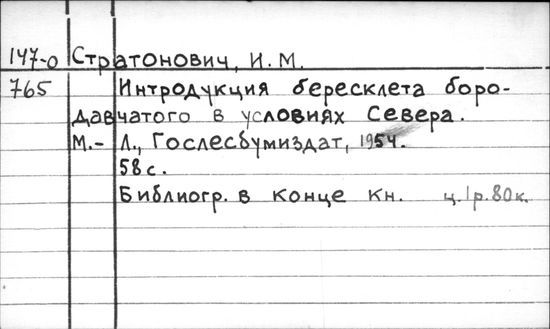 147-о Стратонович, И.М.
765 Интродукция бересклета боро-
давчатого в условиях Севера.
М.- Л., Гослесбумиздат, 1954.
58с.
Библиогр. в конце кн. ц.1р.80к.